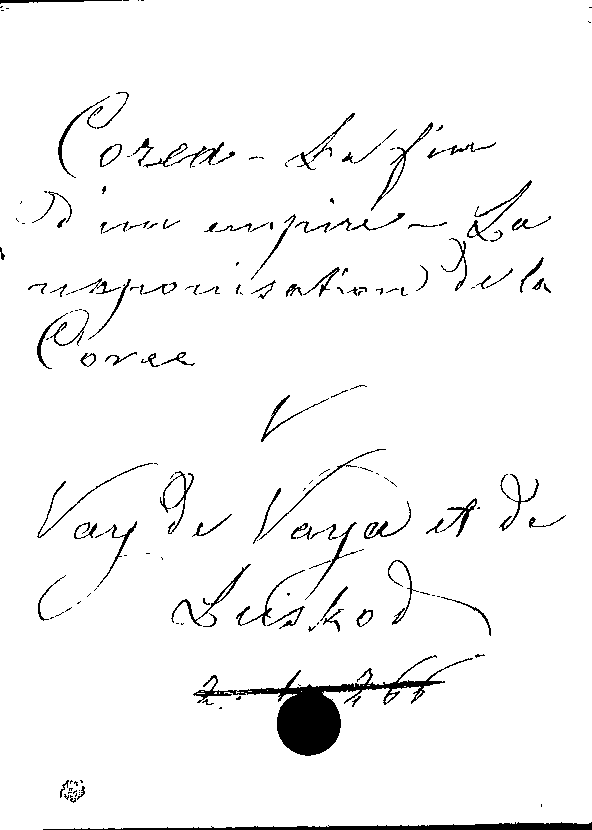 Corea - La fin
d'un empire - La
nipponisation de la
Coree
V
Vay de Vaya et de
Luskod